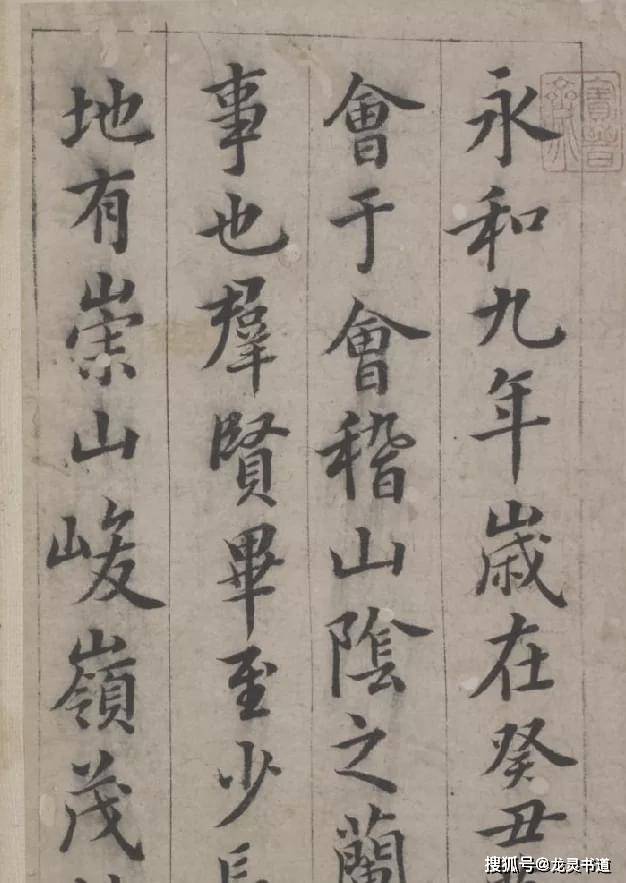 永和九年歲在癸丑
會于會稽山陰之蘭
事也羣賢畢至少長
地有崇山峻嶺茂
搜狐号@龙灵书道